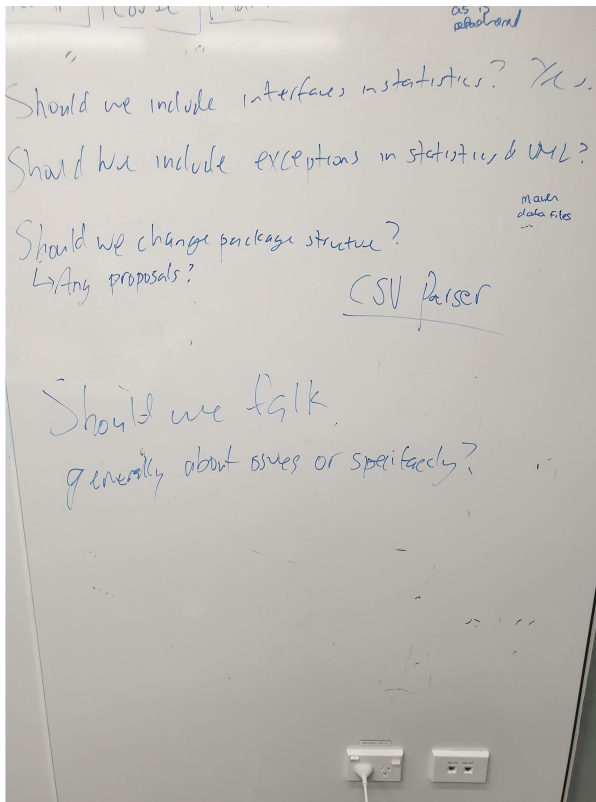 as is
Should we include interfaces in statistics? Yes.
Should we include exceptions in statistics & UML?
maven
data files
...
Should we change package structue?
↳Any proposals?
CSV Parser
Should we talk
generally about issues or specifically?